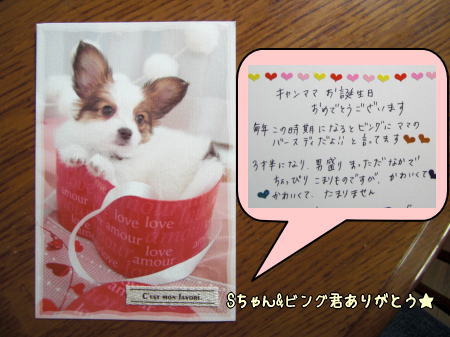 love love
amour
love love
amour
C'EST MON FAVORI
キャンママ お誕生日
おめでとうございます
毎年 この時期になるとビングに ママの
バースデイだよ!! と 言ってます
3才半になり 男盛り まっただなかで
ちょっぴり こまりものですが、かわいくて
かわいくて、たまりません
Sちゃん&ビング君ありがとう★